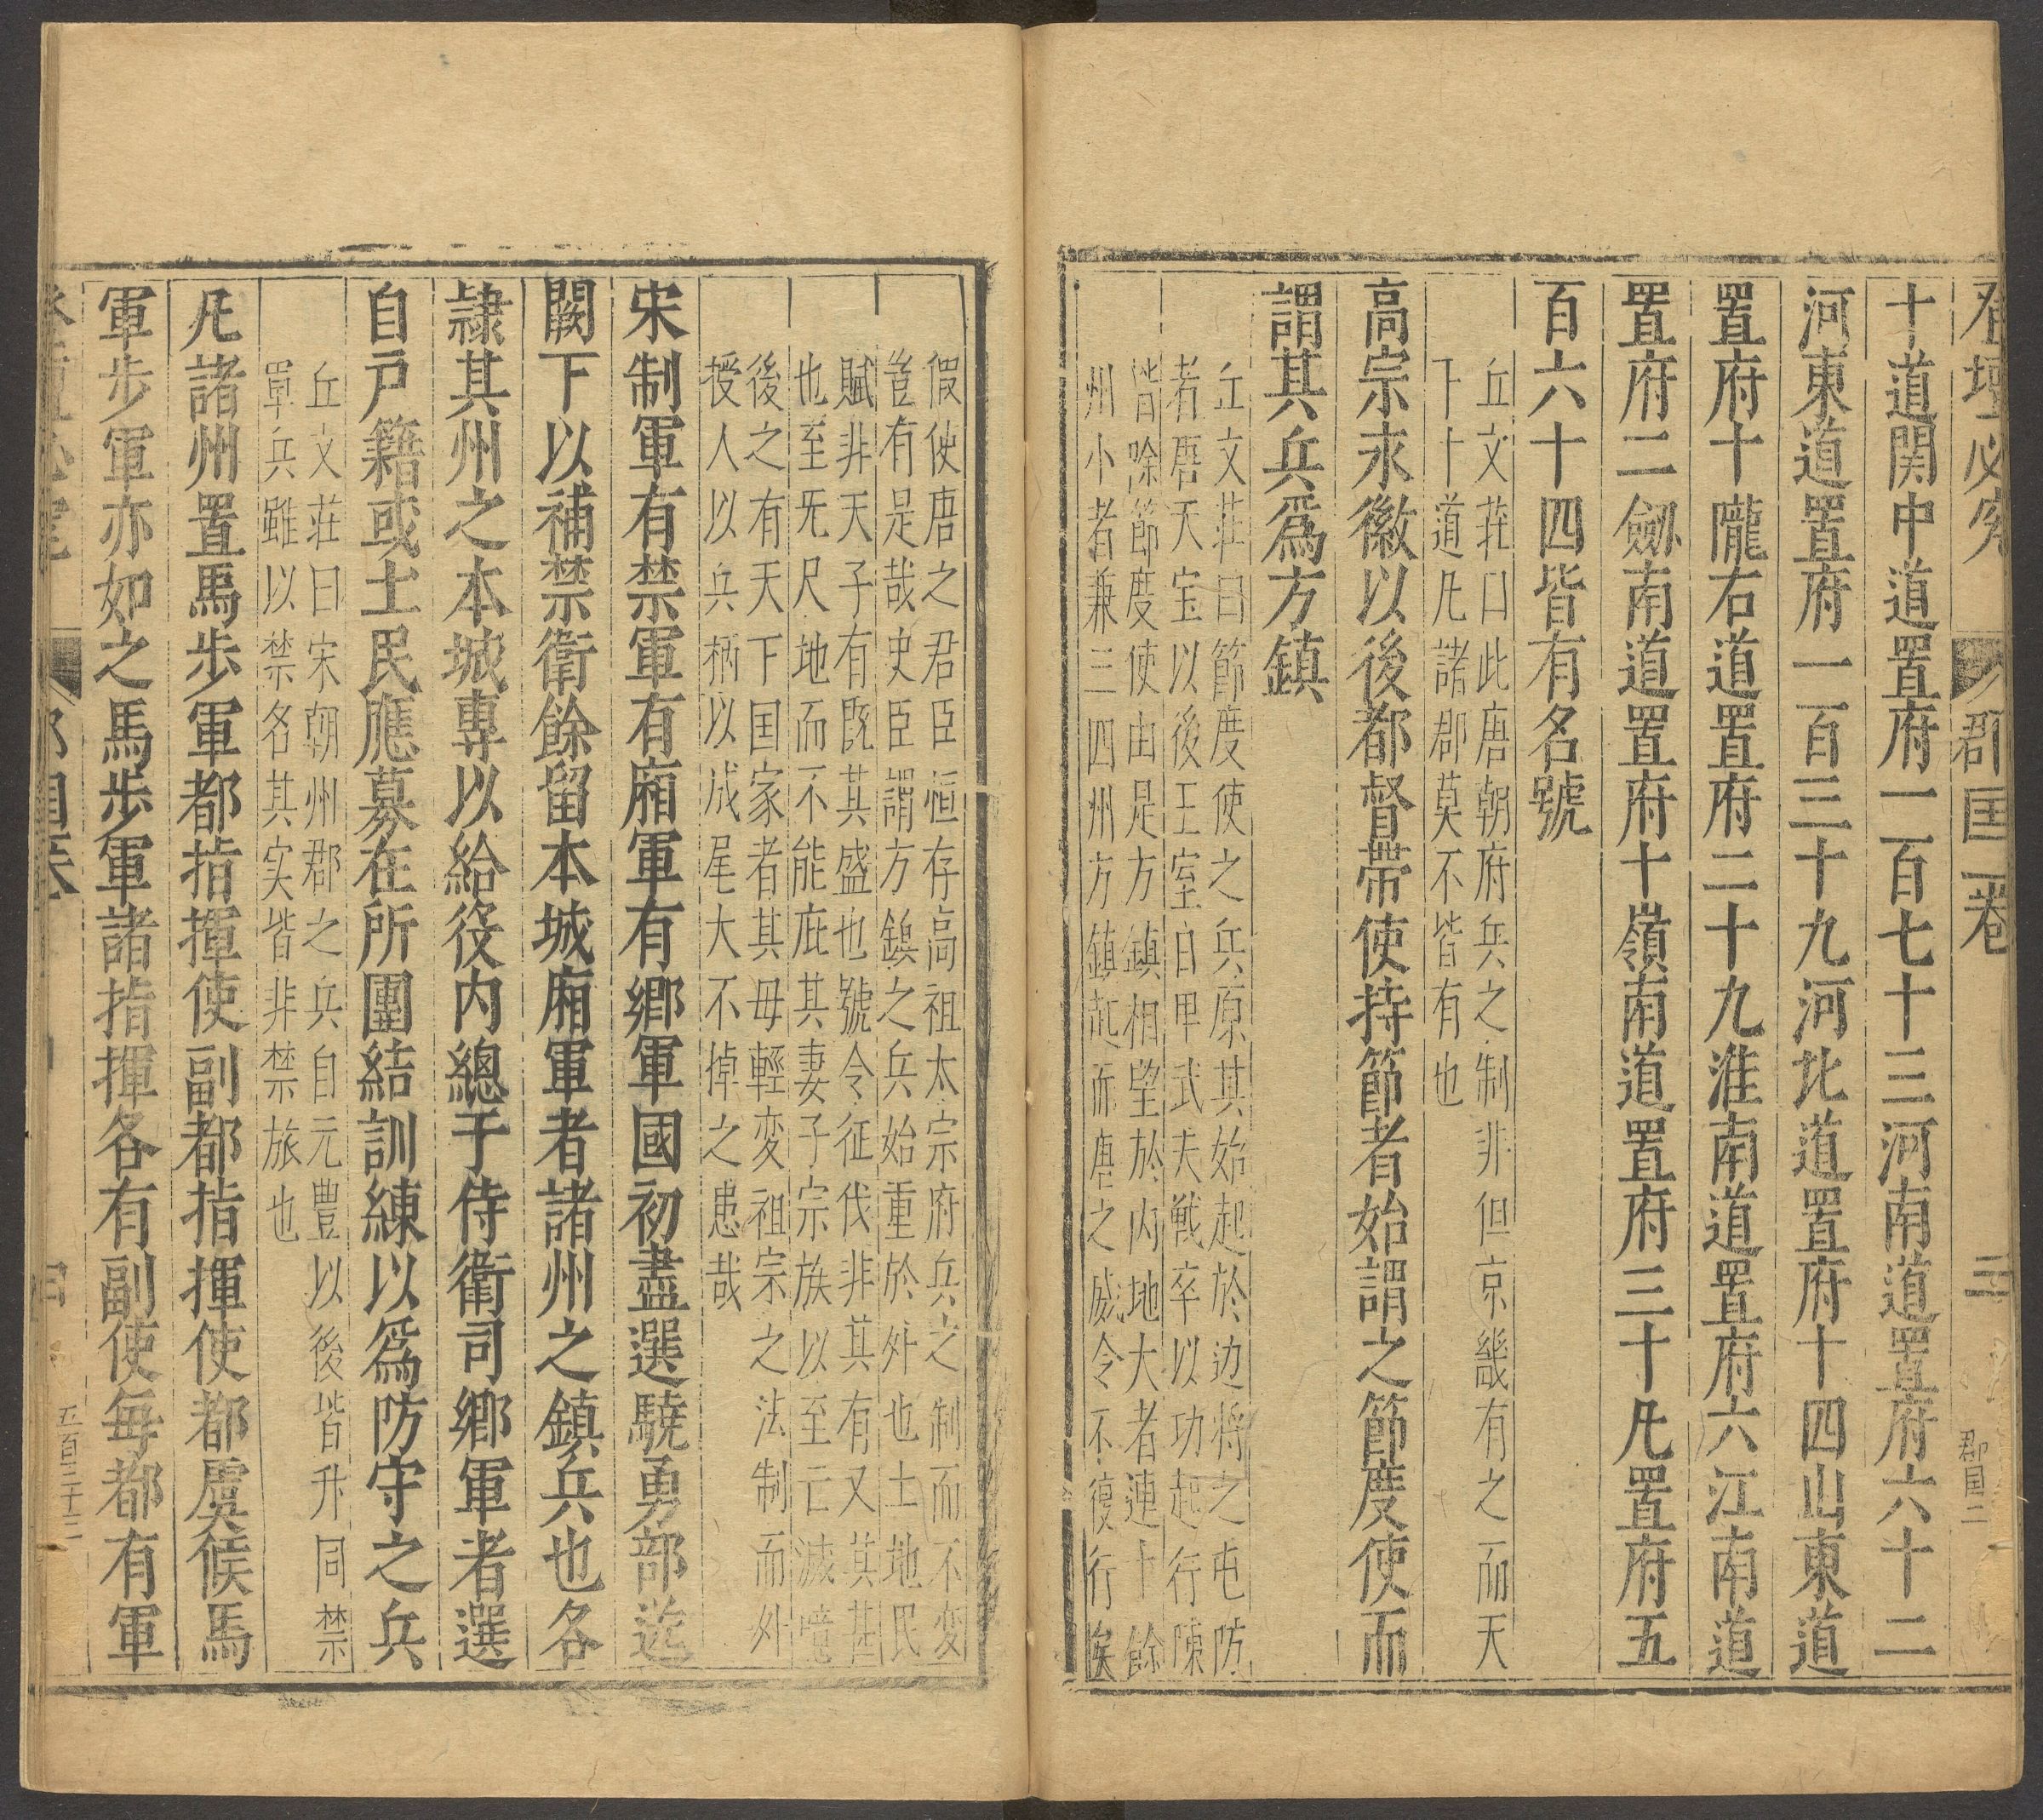 登壇必究
郡囯一卷
三
郡囯二
十道関中道置府一百七十三河南道置府六十二
河東道置府一百三十九河北道置府十四山東道
置府十隴右道置府二十九淮南道置府六江南道
置府二劒南道置府十嶺南道置府三十凡置府五
百六十四皆有名號
丘文莊曰此唐朝府兵之制非但京畿有之而天
下十道凡諸郡莫不皆有也
高宗永徽以後都督帶使持節者始謂之節度使而
謂其兵爲方鎮
丘文莊曰節度使之兵原其始起於边将之屯防
者唐天宝以後王室自甲武夫戦卒以功起行陳
皆除節度使由是方鎮相望於内地大者連十餘
州小者兼三四州方鎮起而唐之威令不復行矣
假使唐之君臣恒存高祖太宗府兵之制而不变
豈有是哉史臣謂方鎮之兵始重於外也土地民
賦非天子有既其盛也號令征伐非其有又其甚
也至旡尺地而不能庇其妻子宗族以至亡滅噫
後之有天下囯家者其毋輕变祖宗之法制而外
授人以兵柄以成尾大不掉之患哉
宋制軍有禁軍有廂軍有鄉軍國初盡選驍勇部送
闕下以補禁衛餘留本城廂軍者諸州之鎮兵也各
隷其州之本城專以給役内總于侍衛司鄉軍者選
自戸籍或土民應募在所團結訓練以爲防守之兵
丘文莊曰宋朝州郡之兵自元豊以後皆升同禁
軍兵雖以禁名其実皆非禁旅也
凡諸州置馬步軍都指揮使副都指揮使都虞候馬
軍步軍亦如之馬步軍諸指揮各有副使每都有軍
五百三十三